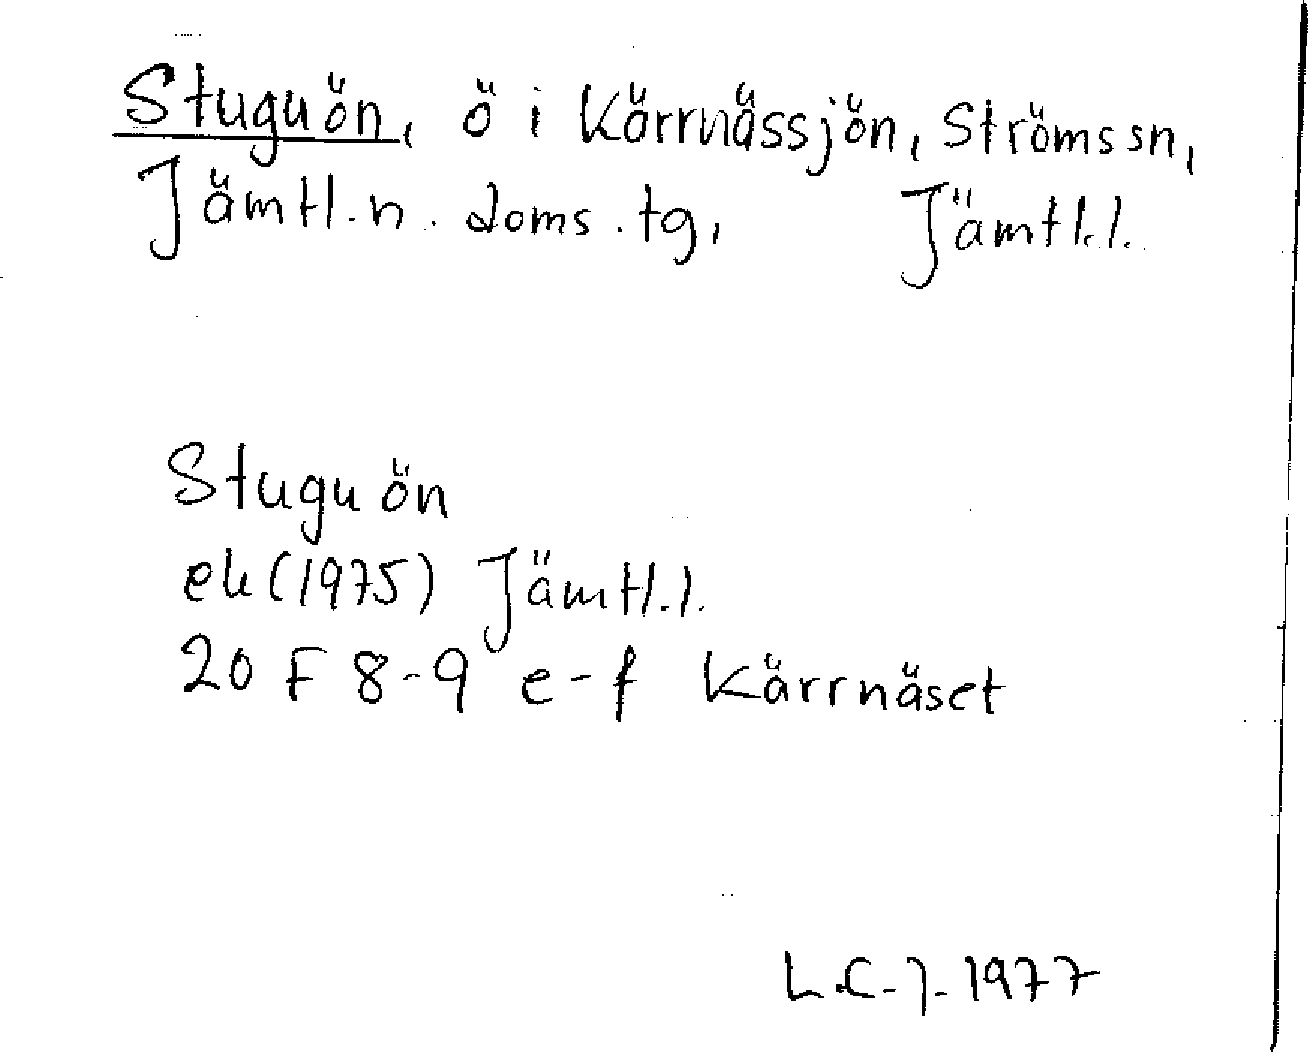 Stuguön, ö i Kärrnässjön, Ströms sn,
Jämtl. n. doms. tg, Jämtl. l.
Stuguön
ek (1975) Jämtl. l.
20 F 8-9 e-f Kärrnäset
L.C-J-1977